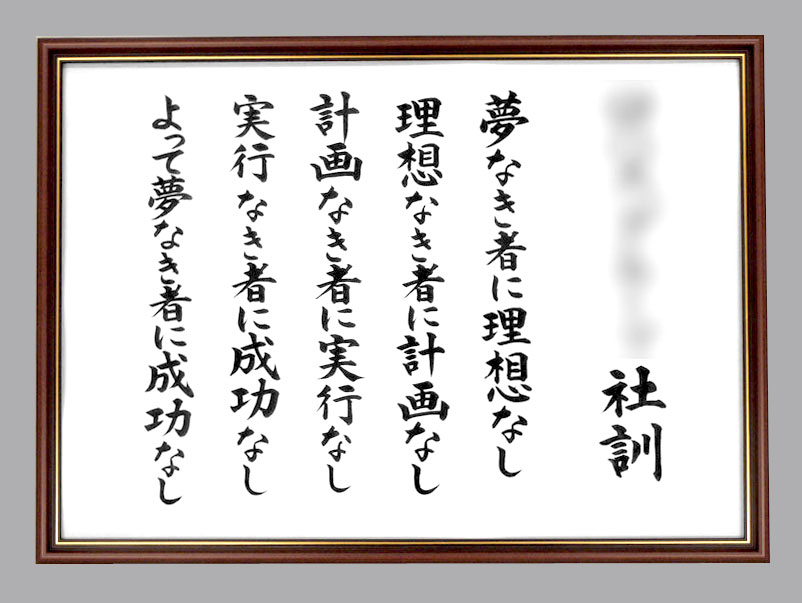 社訓
夢なき者に理想なし
理想なき者に計画なし
計画なき者に実行なし
実行なき者に成功なし
よって夢なき者に成功なし